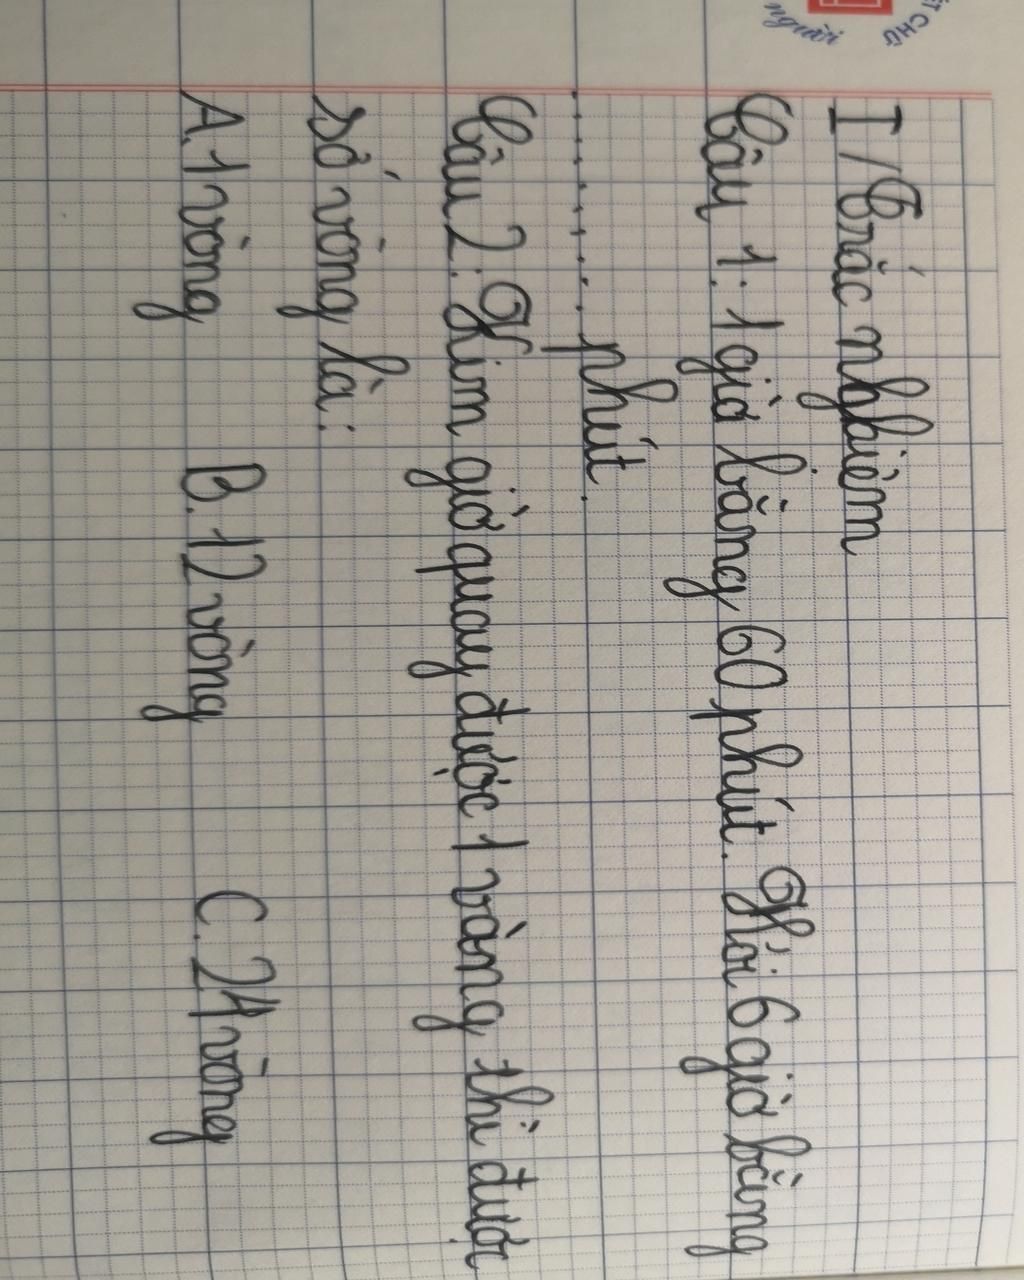 người
ẾT CHỮ
I/Trắc nghiệm
Câu 1: 1 giờ bằng 60 phút. Hỏi 6 giờ bằng
.......... phút.
Câu 2: Kim giờ quay được 1 vòng thì được
số vòng là:
A. 1 vòng B. 12 vòng C. 24 vòng